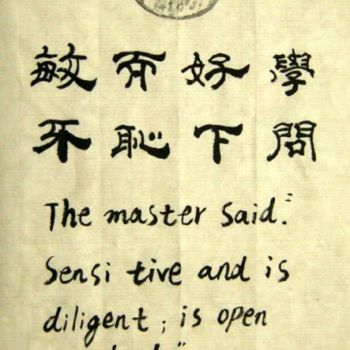 敏而好學
不恥下問
The master Said:"
Sensi tive and is
diligent ; is open